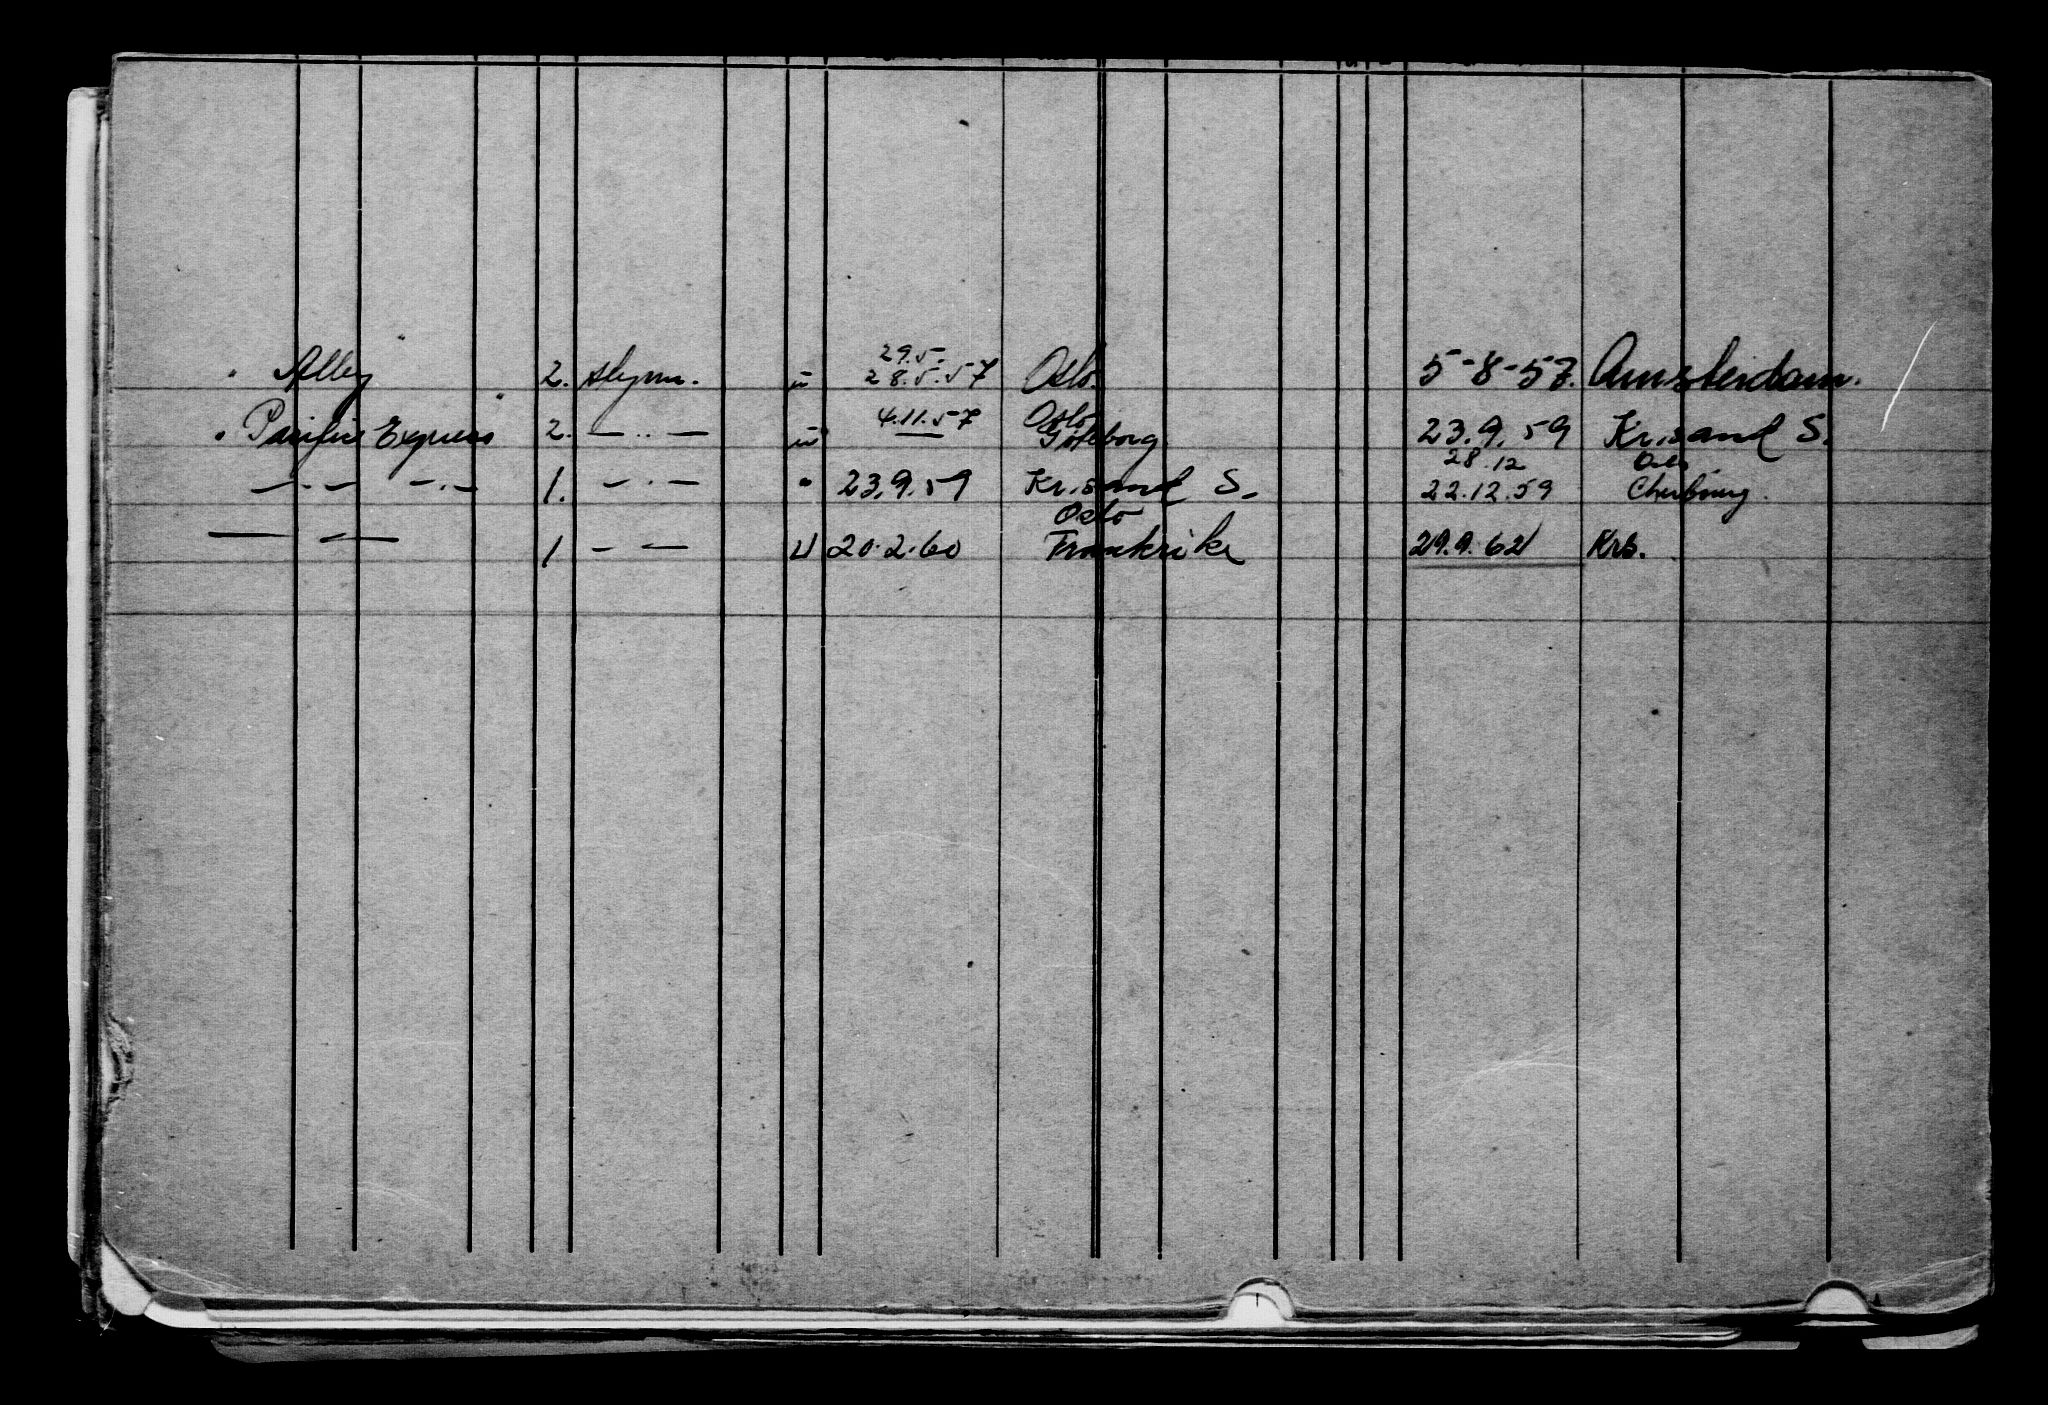 29.5.
Alley 2. styrm. u 28.5.57 Oslo. 5-8-57. Amsterdam.
4.11.57 Oslo
Pacific Express 2. — .. — u — Göteborg. 23.9.59 Kr.sand S.
28.12 Oslo
— . — — . — 1. — . — " 23.9.59 Kr.sand S. 22.12.59 Cherbourg.
Oslo
— — 1 — — U 20.2.60 Frankrike 29.9.62 Krs.